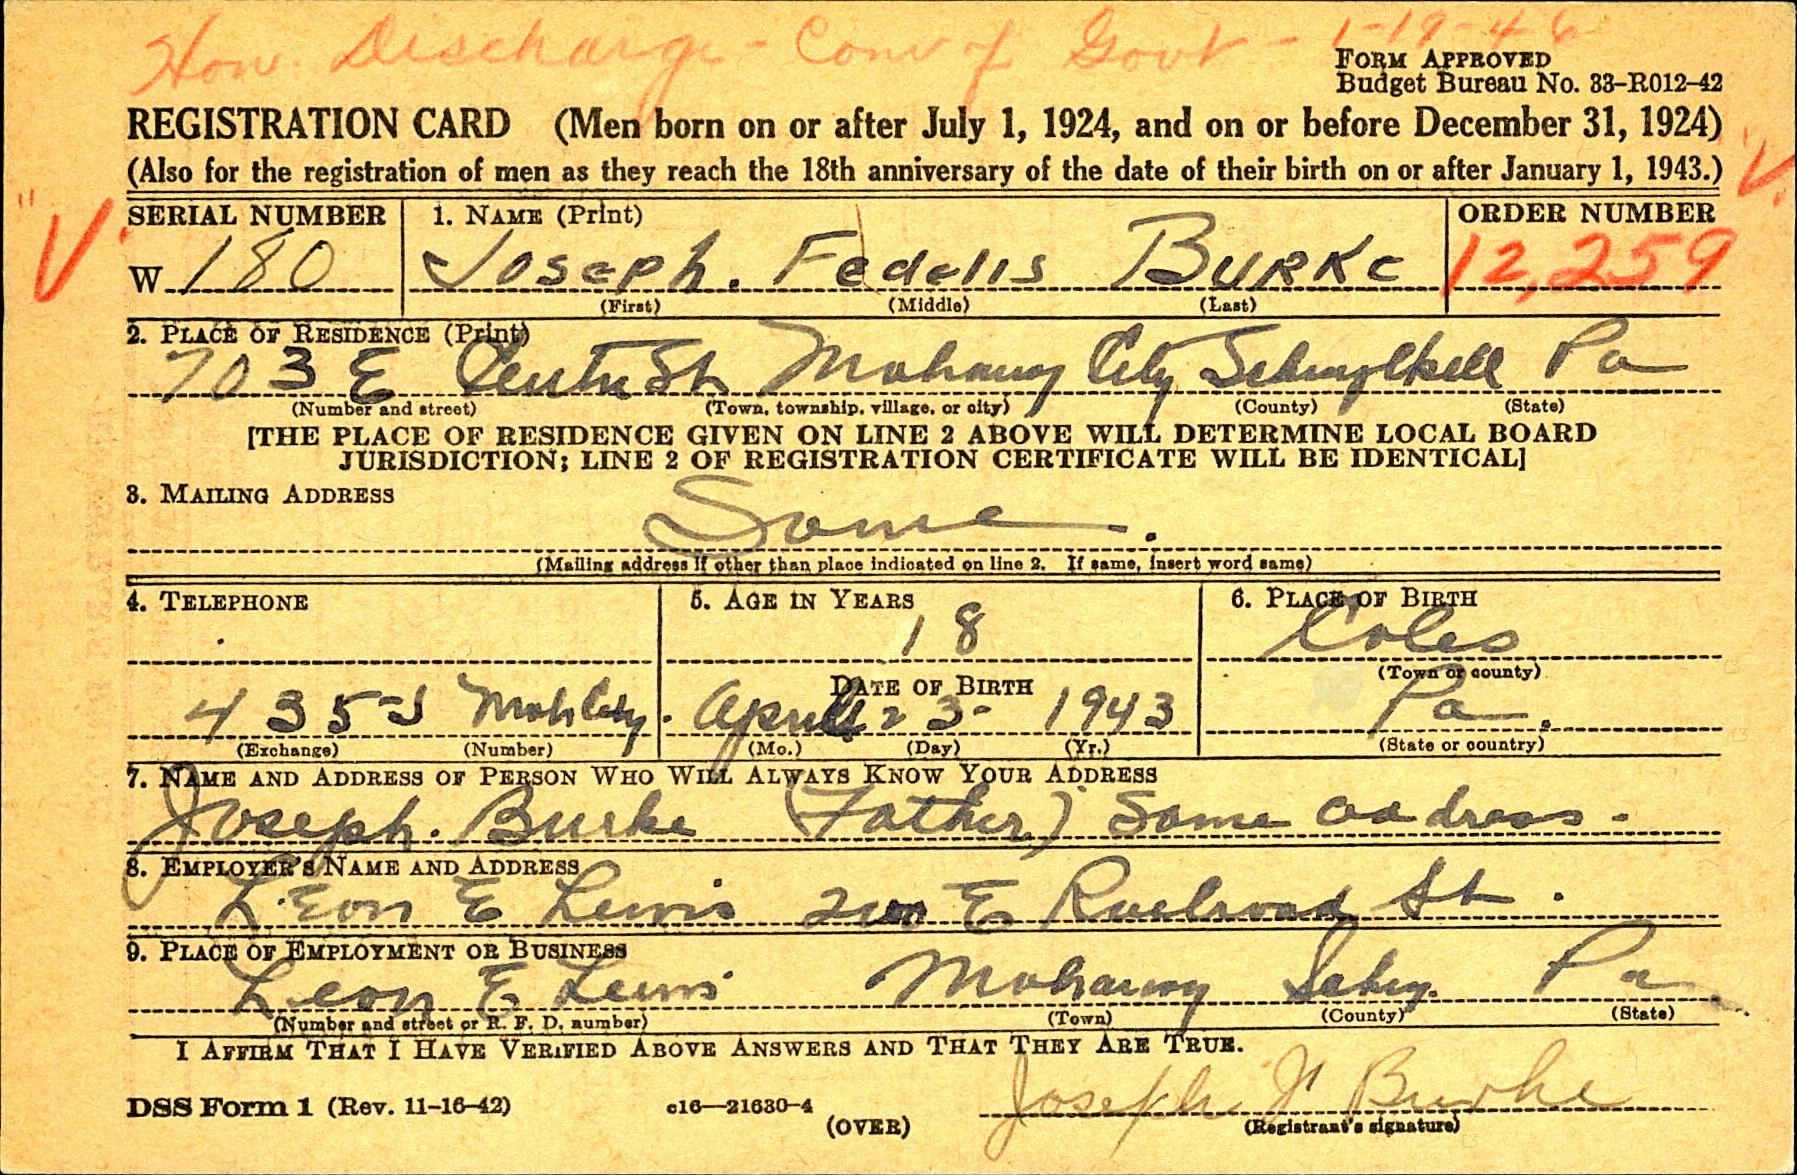 Hon. Discharge - Conv of Govt - 1-19-46
FORM APPROVED
Budget Bureau No. 33-R012-42
REGISTRATION CARD (Men born on or after July 1, 1924, and on or before December 31, 1924)
(Also for the registration of men as they reach the 18th anniversary of the date of their birth on or after January 1, 1943.)
"V" "V"
SERIAL NUMBER 1. NAME (Print) ORDER NUMBER
W 180 Joseph. Fedelis BURKe 12,259
(First) (Middle) (Last)
2. PLACE OF RESIDENCE (Print)
703 E Centre St Mahanoy City Schuylkill Pa
(Number and street) (Town, township, village, or city) (County) (State)
[THE PLACE OF RESIDENCE GIVEN ON LINE 2 ABOVE WILL DETERMINE LOCAL BOARD
JURISDICTION; LINE 2 OF REGISTRATION CERTIFICATE WILL BE IDENTICAL]
3. MAILING ADDRESS
Same.
(Mailing address if other than place indicated on line 2. If same, insert word same)
4. TELEPHONE 5. AGE IN YEARS 6. PLACE OF BIRTH
18 Coles
DATE OF BIRTH (Town or county)
435-J Mah City. April 23- 1943 Pa.
(Exchange) (Number) (Mo.) (Day) (Yr.) (State or country)
7. NAME AND ADDRESS OF PERSON WHO WILL ALWAYS KNOW YOUR ADDRESS
Joseph. Burke (Father) Same address.
8. EMPLOYER'S NAME AND ADDRESS
LEon E Lewis 200 E Railroad St.
9. PLACE OF EMPLOYMENT OR BUSINESS
Leon E Lewis Mahanoy Schuy. Pa.
(Number and street or R. F. D. number) (Town) (County) (State)
I AFFIRM THAT I HAVE VERIFIED ABOVE ANSWERS AND THAT THEY ARE TRUE.
Joseph F Burke
DSS Form 1 (Rev. 11-16-42) c16—21630-4
(OVER) (Registrant's signature)